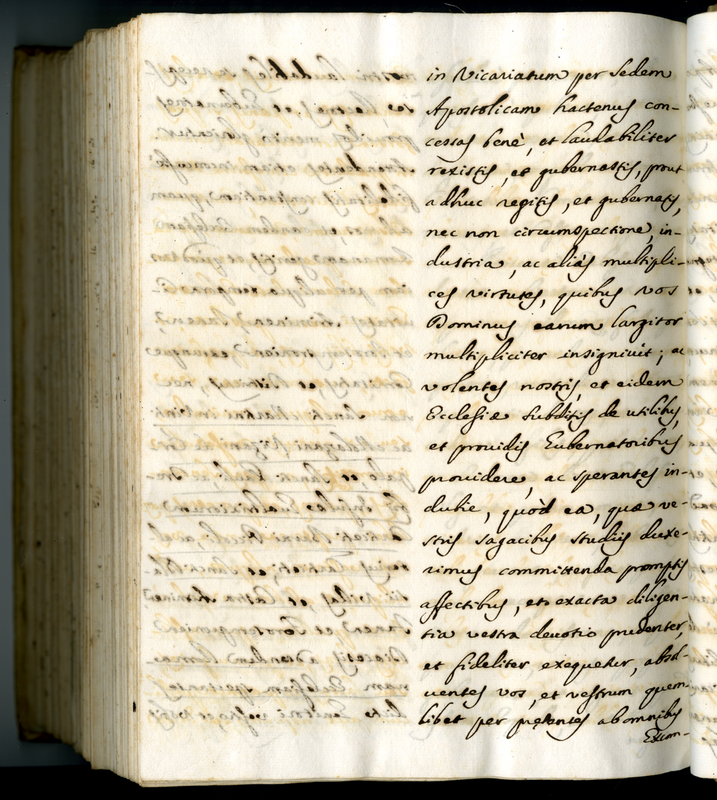 in Vicariatum per Sedem
Apostolicam hactenus con-
cessas benè, et laudabiliter
rexistis, et gubernastis, prout
adhuc regitis, et gubernatis,
nec non circumspectione, in-
dustria, ac aliàs multipli-
ces virtutes, quibus vos
Dominus earum largitor
multipliciter insignivit; ac
volentes nostris, et eidem
Ecclesiæ subditis de utilibus,
et providis Gubernatoribus
providere, ac sperantes in-
dubie, quòd ea, quæ ve-
stris sagacibus studiis duxe-
rimus committenda promptis
affectibus, et exacta diligen-
tia vestra devotio prudenter,
et fideliter exequetur, absol-
ventes vos, et vestrum quem-
libet per p̃sentes ab omnibus
Excom-